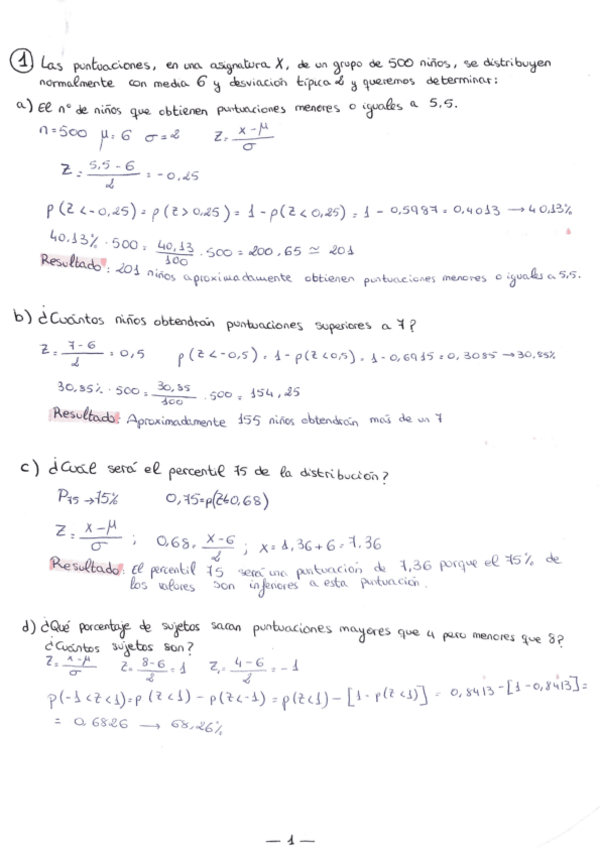 1 Las puntuaciones, en una asignatura X, de un grupo de 500 niños, se distribuyen
normalmente con media 6 y desviación típica 2 y queremos determinar:
a) El nº de niños que obtienen puntuaciones menores o iguales a 5,5.
n=500 μ=6 σ=2 Z= x-μ/σ
Z= 5,5-6/2 = -0,25
p(Z<-0,25)=p(Z>0,25)=1-p(Z<0,25)=1-0,5987=0,4013→40,13%
40,13%·500= 40,13/100 ·500=200,65≃201
Resultado: 201 niños aproximadamente obtienen puntuaciones menores o iguales a 5,5.
b) ¿Cuántos niños obtendrán puntuaciones superiores a 7?
Z= 7-6/2 =0,5 p(Z<-0,5)=1-p(Z<0,5)=1-0,6915=0,3085→30,85%
30,85%·500= 30,85/100 ·500=154,25
Resultado: Aproximadamente 155 niños obtendrán más de un 7
c) ¿Cuál será el percentil 75 de la distribución?
P75→75% 0,75=p(Z≤0,68)
Z= x-μ/σ ; 0,68= x-6/2 ; x=1,36+6=7,36
Resultado: El percentil 75 será una puntuación de 7,36 porque el 75% de
los valores son inferiores a esta puntuación.
d) ¿Qué porcentaje de sujetos sacan puntuaciones mayores que 4 pero menores que 8?
¿Cuántos sujetos son?
Z= x-μ/σ Z= 8-6/2 =1 Z= 4-6/2 =-1
p(-1<Z<1)=p(Z<1)-p(Z<-1)=p(Z<1)-[1-p(Z<1)]=0,8413-[1-0,8413]=
=0,6826→68,26%
— 1 —